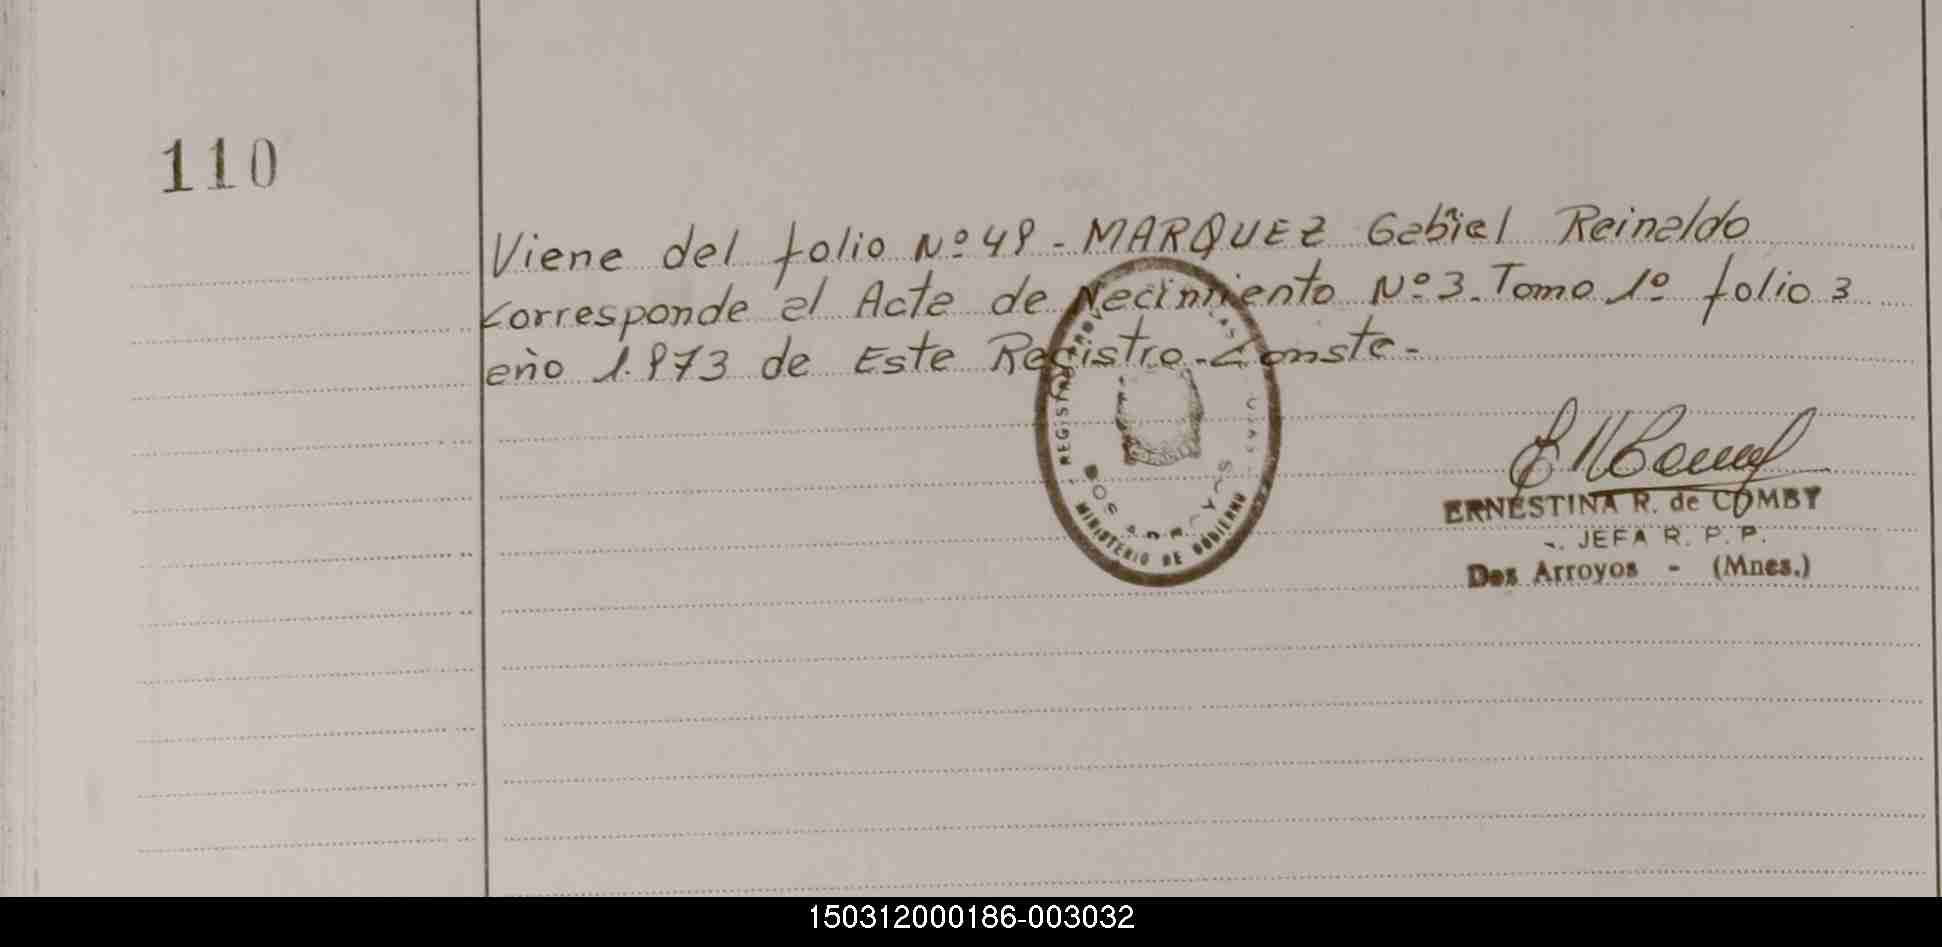 110
Viene del folio Nº 49 - MARQUEZ Gabriel Reinaldo
corresponde al Acta de Nacimiento Nº 3. Tomo 1º folio 3
año 1.973 de Este Registro. Conste -
REGISTRO PROV
LAS
DOS ARROYOS
MINISTERIO DE GOBIERNO
ERNESTINA R. de COMBY
-. JEFA R. P. P.
Dos Arroyos - (Mnes.)
150312000186-003032